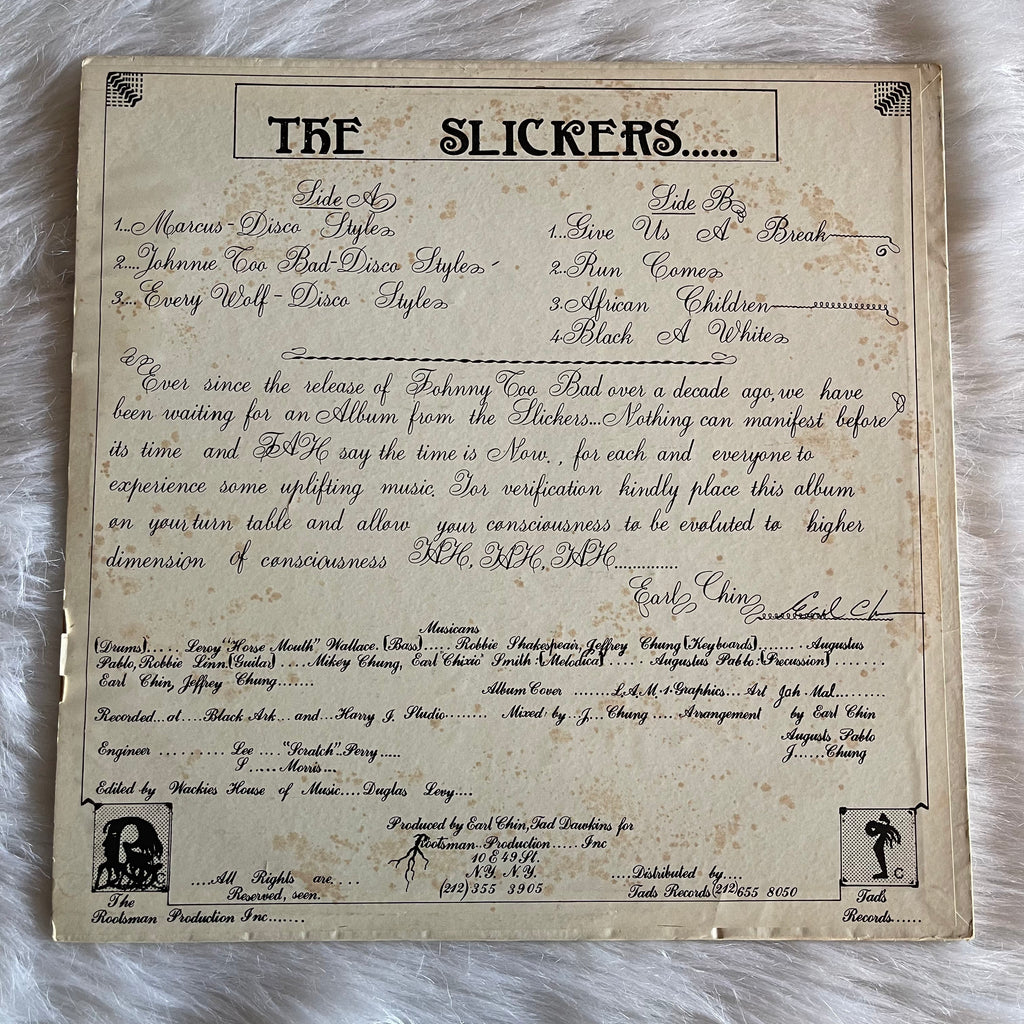 THE SLICKERS......
Side A
1...Marcus-Disco Style
2....Johnnie Too Bad-Disco Style
3....Every Wolf-Disco Style
Side B
1...Give Us A Break
2..Run Come
3.African Children
4.Black A White
Ever since the release of Johnny Too Bad over a decade ago, we have
been waiting for an Album from the Slickers...Nothing can manifest before
its time and JAH say the time is Now., for each and everyone to
experience some uplifting music. For verification kindly place this album
on your turn table and allow your consciousness to be evoluted to higher
dimension of consciousness JAH, JAH, JAH...............
Earl Chin
Musicans
(Drums)..... Leroy "Horse Mouth" Wallace. (Bass)..... Robbie Shakespeair, Jeffrey Chung (Keyboards)........ Augustus
Pablo, Robbie Linn. (Guitar) .... Mikey Chung, Earl Chixio' Smith: (Melodica)..... Augustus Pablo: (Precussion)........
Earl Chin, Jeffrey Chung.......
Album Cover .......L.A.M.1.Graphics... Art Jah Mal.........
Recorded...at...Black Ark...and...Harry J. Studio........ Mixed by...J...Chung .... Arrangement by Earl Chin
Augusts Pablo
J......Chung
Engineer ......... Lee ...."Scratch"..Perry.....
S .....Morris...
Edited by Wackies House of Music....Duglas Levy....
Produced by Earl Chin, Tad Dawkins for
Rootsman..Production.....Inc
10 E 49 St.
N.Y. N.Y.
(212) 355 3905
....All Rights are....
Reserved, seen.
....Distributed by....
Tads Records (212) 655 8050
The
Rootsman Production Inc.......
C
Tad's
Records......